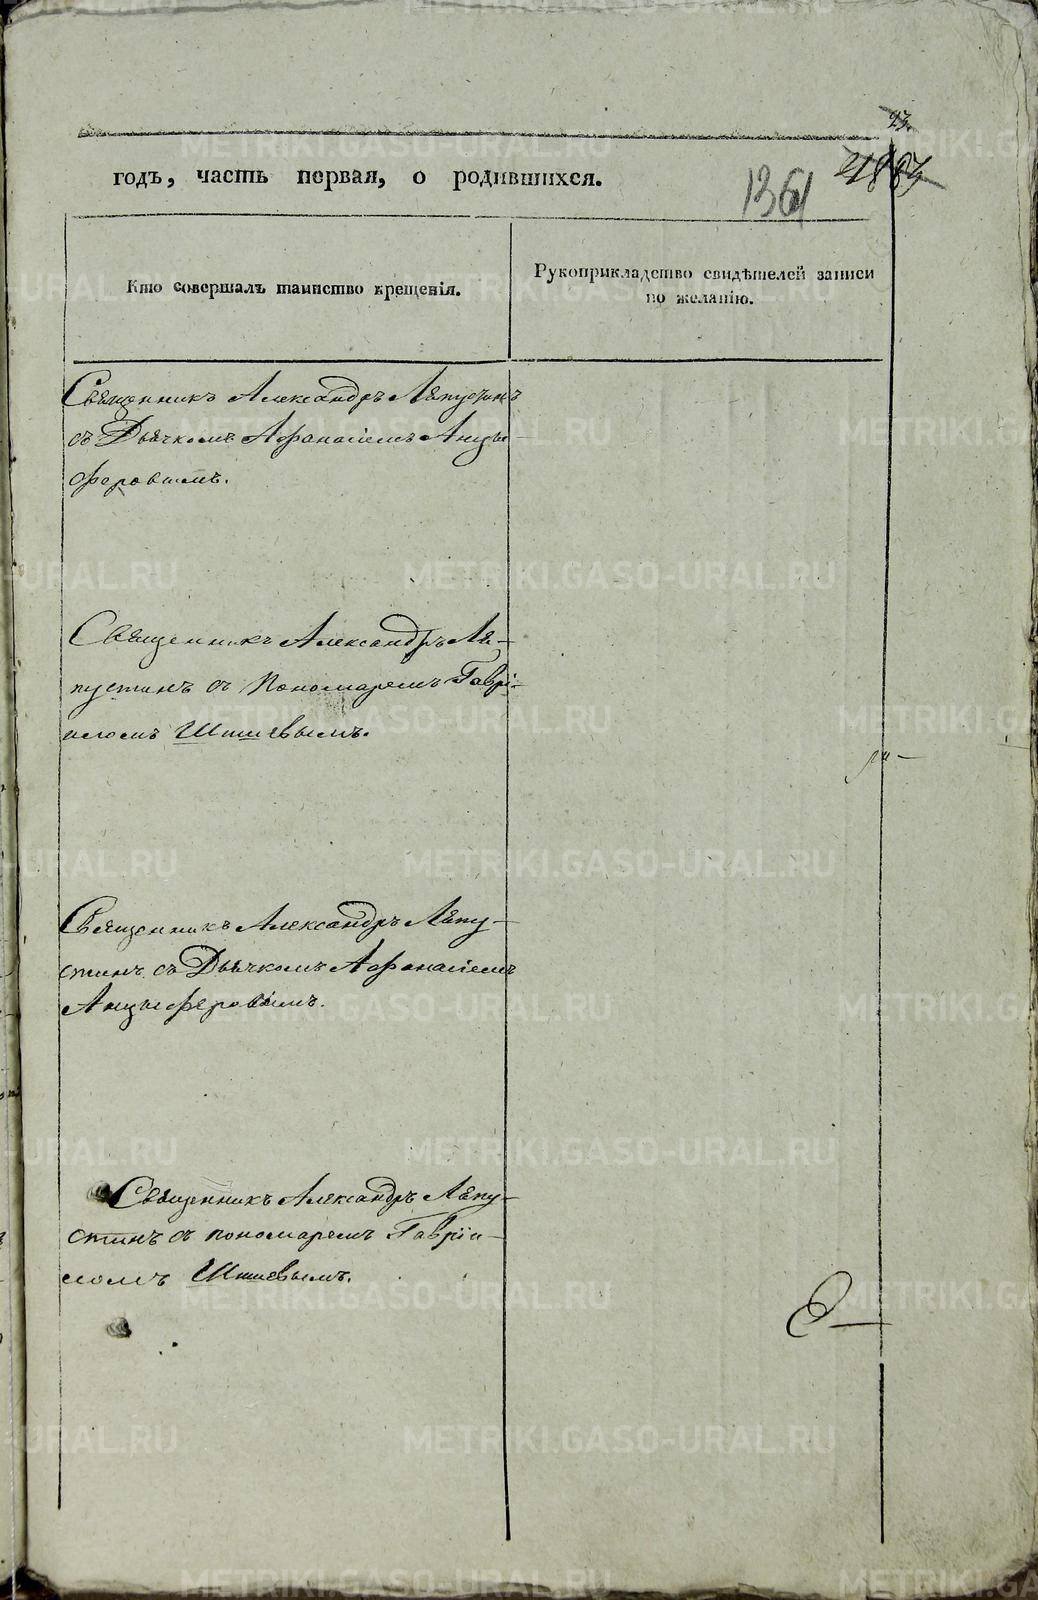 годъ, часть первая, о родившихся.
1361
Кто совершалъ таинство крещенія.
Рукоприкладство свидѣтелей записи
по желанію.
Священникъ Александръ Лѣпустинъ
съ Дьячкомъ Афанасіемъ Анцы-
феровымъ.
Священникъ Александръ Лѣ-
пустинъ съ Пономаремъ Гаврі-
иломъ
Священникъ Александръ Лѣпу-
стинъ съ Дьячкомъ Афанасіемъ
Анцыферовымъ.
Священникъ Александръ Лѣпу-
стинъ съ пономаремъ Гавріи-
ломъ
METRIKI.GASO-URAL.RU